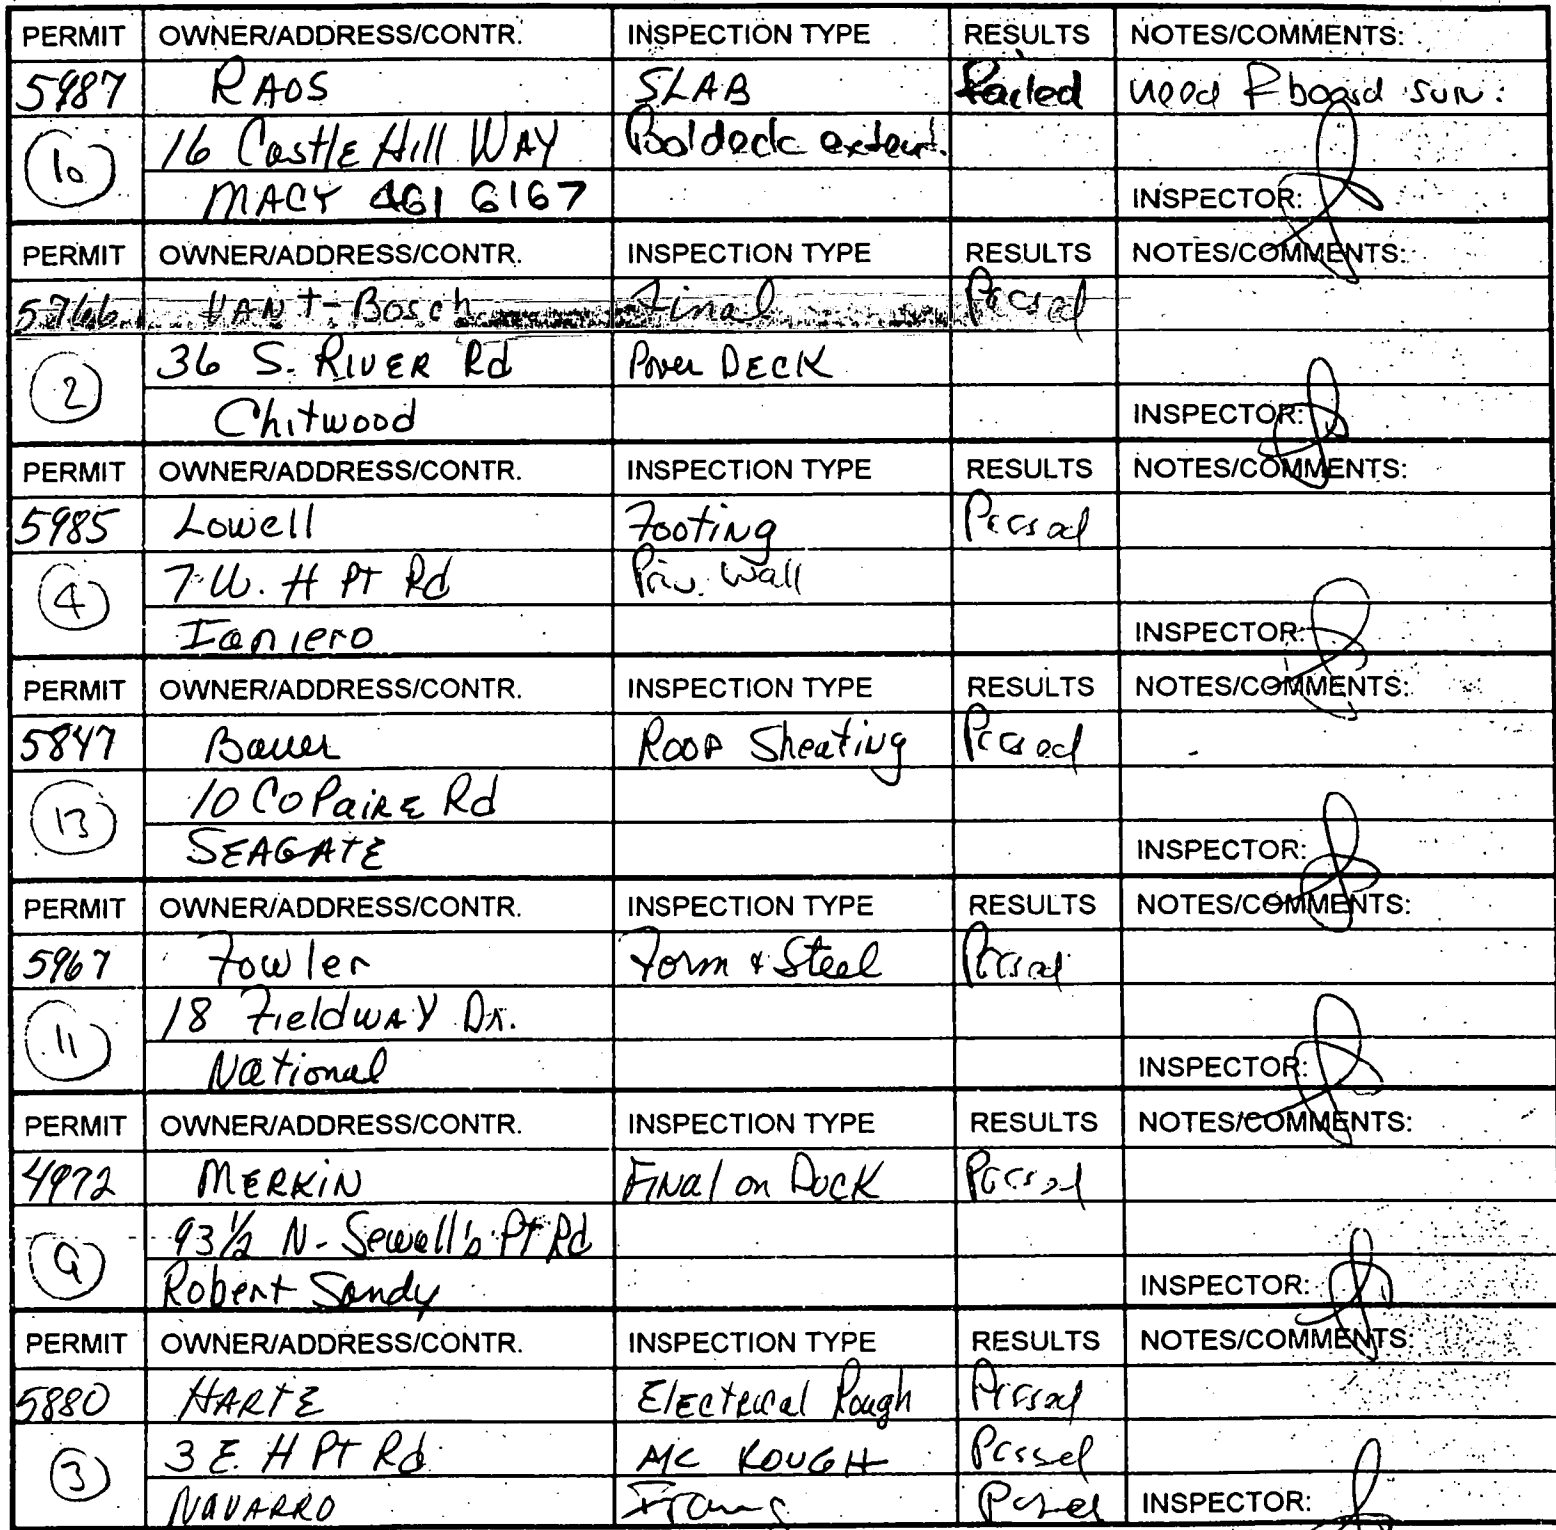 PERMIT OWNER/ADDRESS/CONTR. INSPECTION TYPE RESULTS NOTES/COMMENTS:
5987 RAOS SLAB Failed need F board surv.
10 16 Castle Hill WAY Pooldeck extent.
MACY 461 6167 INSPECTOR:
PERMIT OWNER/ADDRESS/CONTR. INSPECTION TYPE RESULTS NOTES/COMMENTS:
5766 VAN t-Bosch Final Passed
2 36 S. RIVER Rd Paver DECK
Chitwood INSPECTOR:
PERMIT OWNER/ADDRESS/CONTR. INSPECTION TYPE RESULTS NOTES/COMMENTS:
5985 Lowell Footing Passed
4 7 W. H PT Rd Priv. Wall
Ianiero INSPECTOR:
PERMIT OWNER/ADDRESS/CONTR. INSPECTION TYPE RESULTS NOTES/COMMENTS:
5847 Bauer Roof Sheating Passed
13 10 CoPaire Rd
SEAGATE INSPECTOR:
PERMIT OWNER/ADDRESS/CONTR. INSPECTION TYPE RESULTS NOTES/COMMENTS:
5967 Fowler Form & Steel Passed
11 18 Fieldway Dr.
National INSPECTOR:
PERMIT OWNER/ADDRESS/CONTR. INSPECTION TYPE RESULTS NOTES/COMMENTS:
4972 MERKIN FINal on Dock Passed
9 93 1/2 N. Sewell's Pt Rd
Robert Sandy INSPECTOR:
PERMIT OWNER/ADDRESS/CONTR. INSPECTION TYPE RESULTS NOTES/COMMENTS:
5880 HARTE Electrical Rough Passed
3 3 E. H PT Rd A/C ROUGH Passed
NAVARRO Passed INSPECTOR: